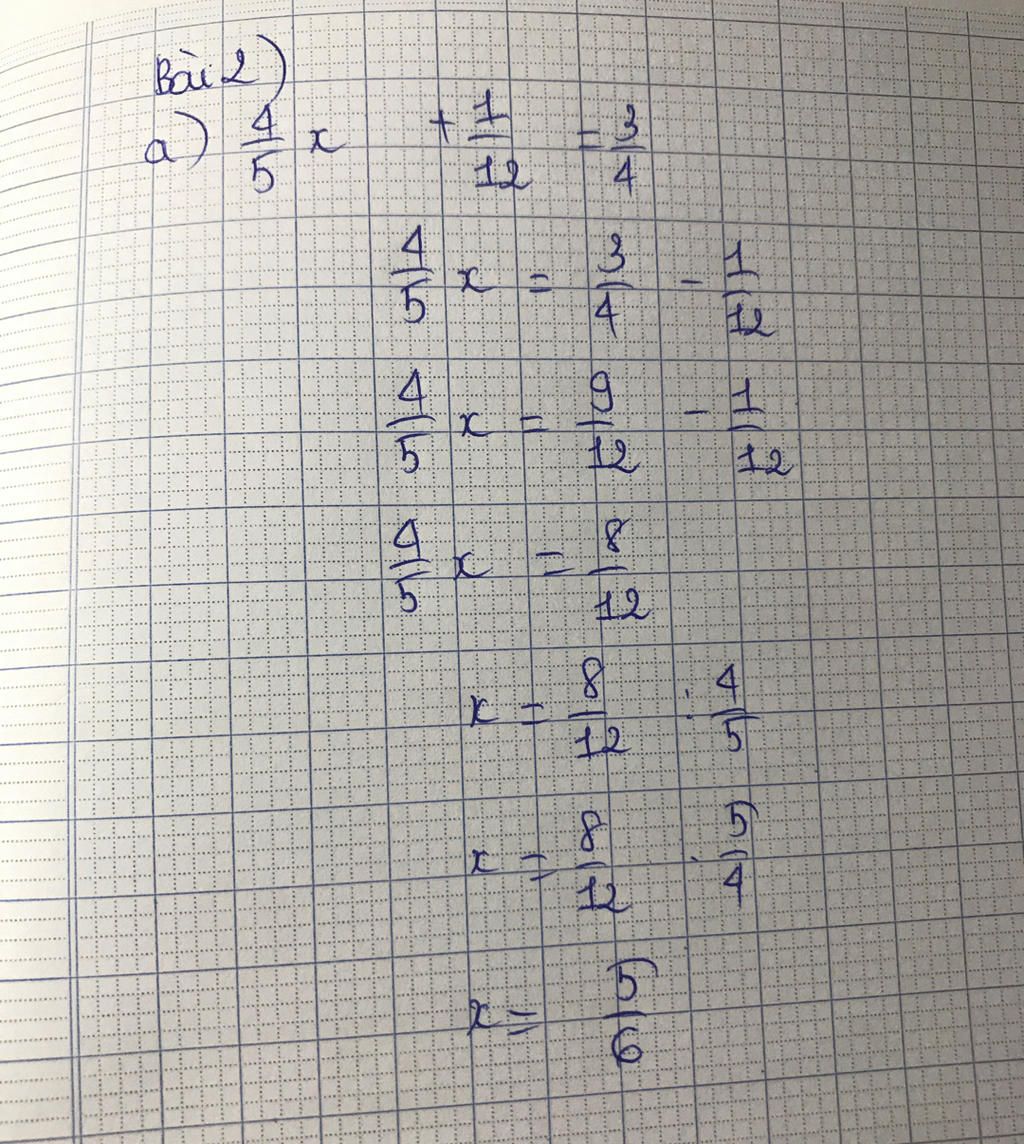 Bài 2)
a) 4/5 x + 1/12 = 3/4
4/5 x = 3/4 - 1/12
4/5 x = 9/12 - 1/12
4/5 x = 8/12
x = 8/12 : 4/5
x = 8/12 . 5/4
x = 5/6